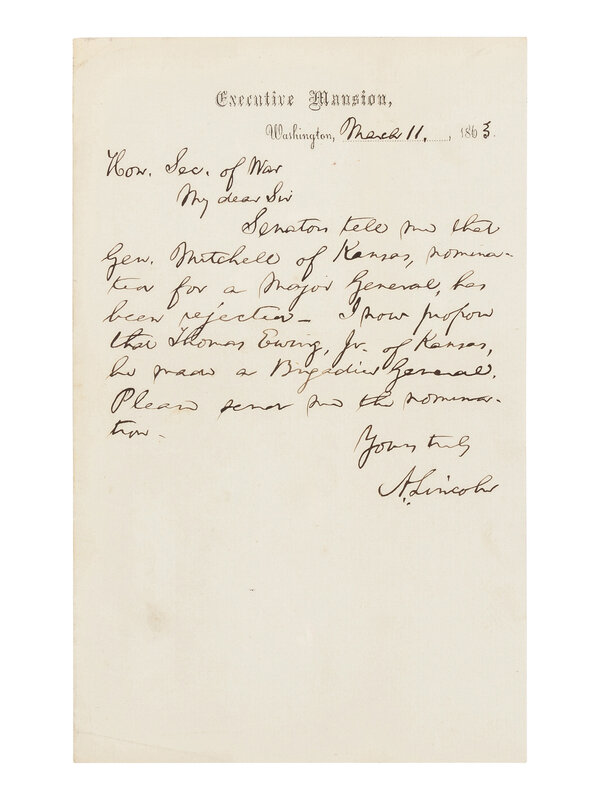 Executive Mansion,
Washington, March 11, 1863.
Hon. Sec. of War
My dear Sir
Senators tell me that
Gen. Mitchell of Kansas, nomina-
tion for a Major General, has
been rejected - I now propose
that Thomas Ewing, Jr. of Kansas,
be made a Brigadier General.
Please send me the nomina-
tion -
Yours truly
A. Lincoln